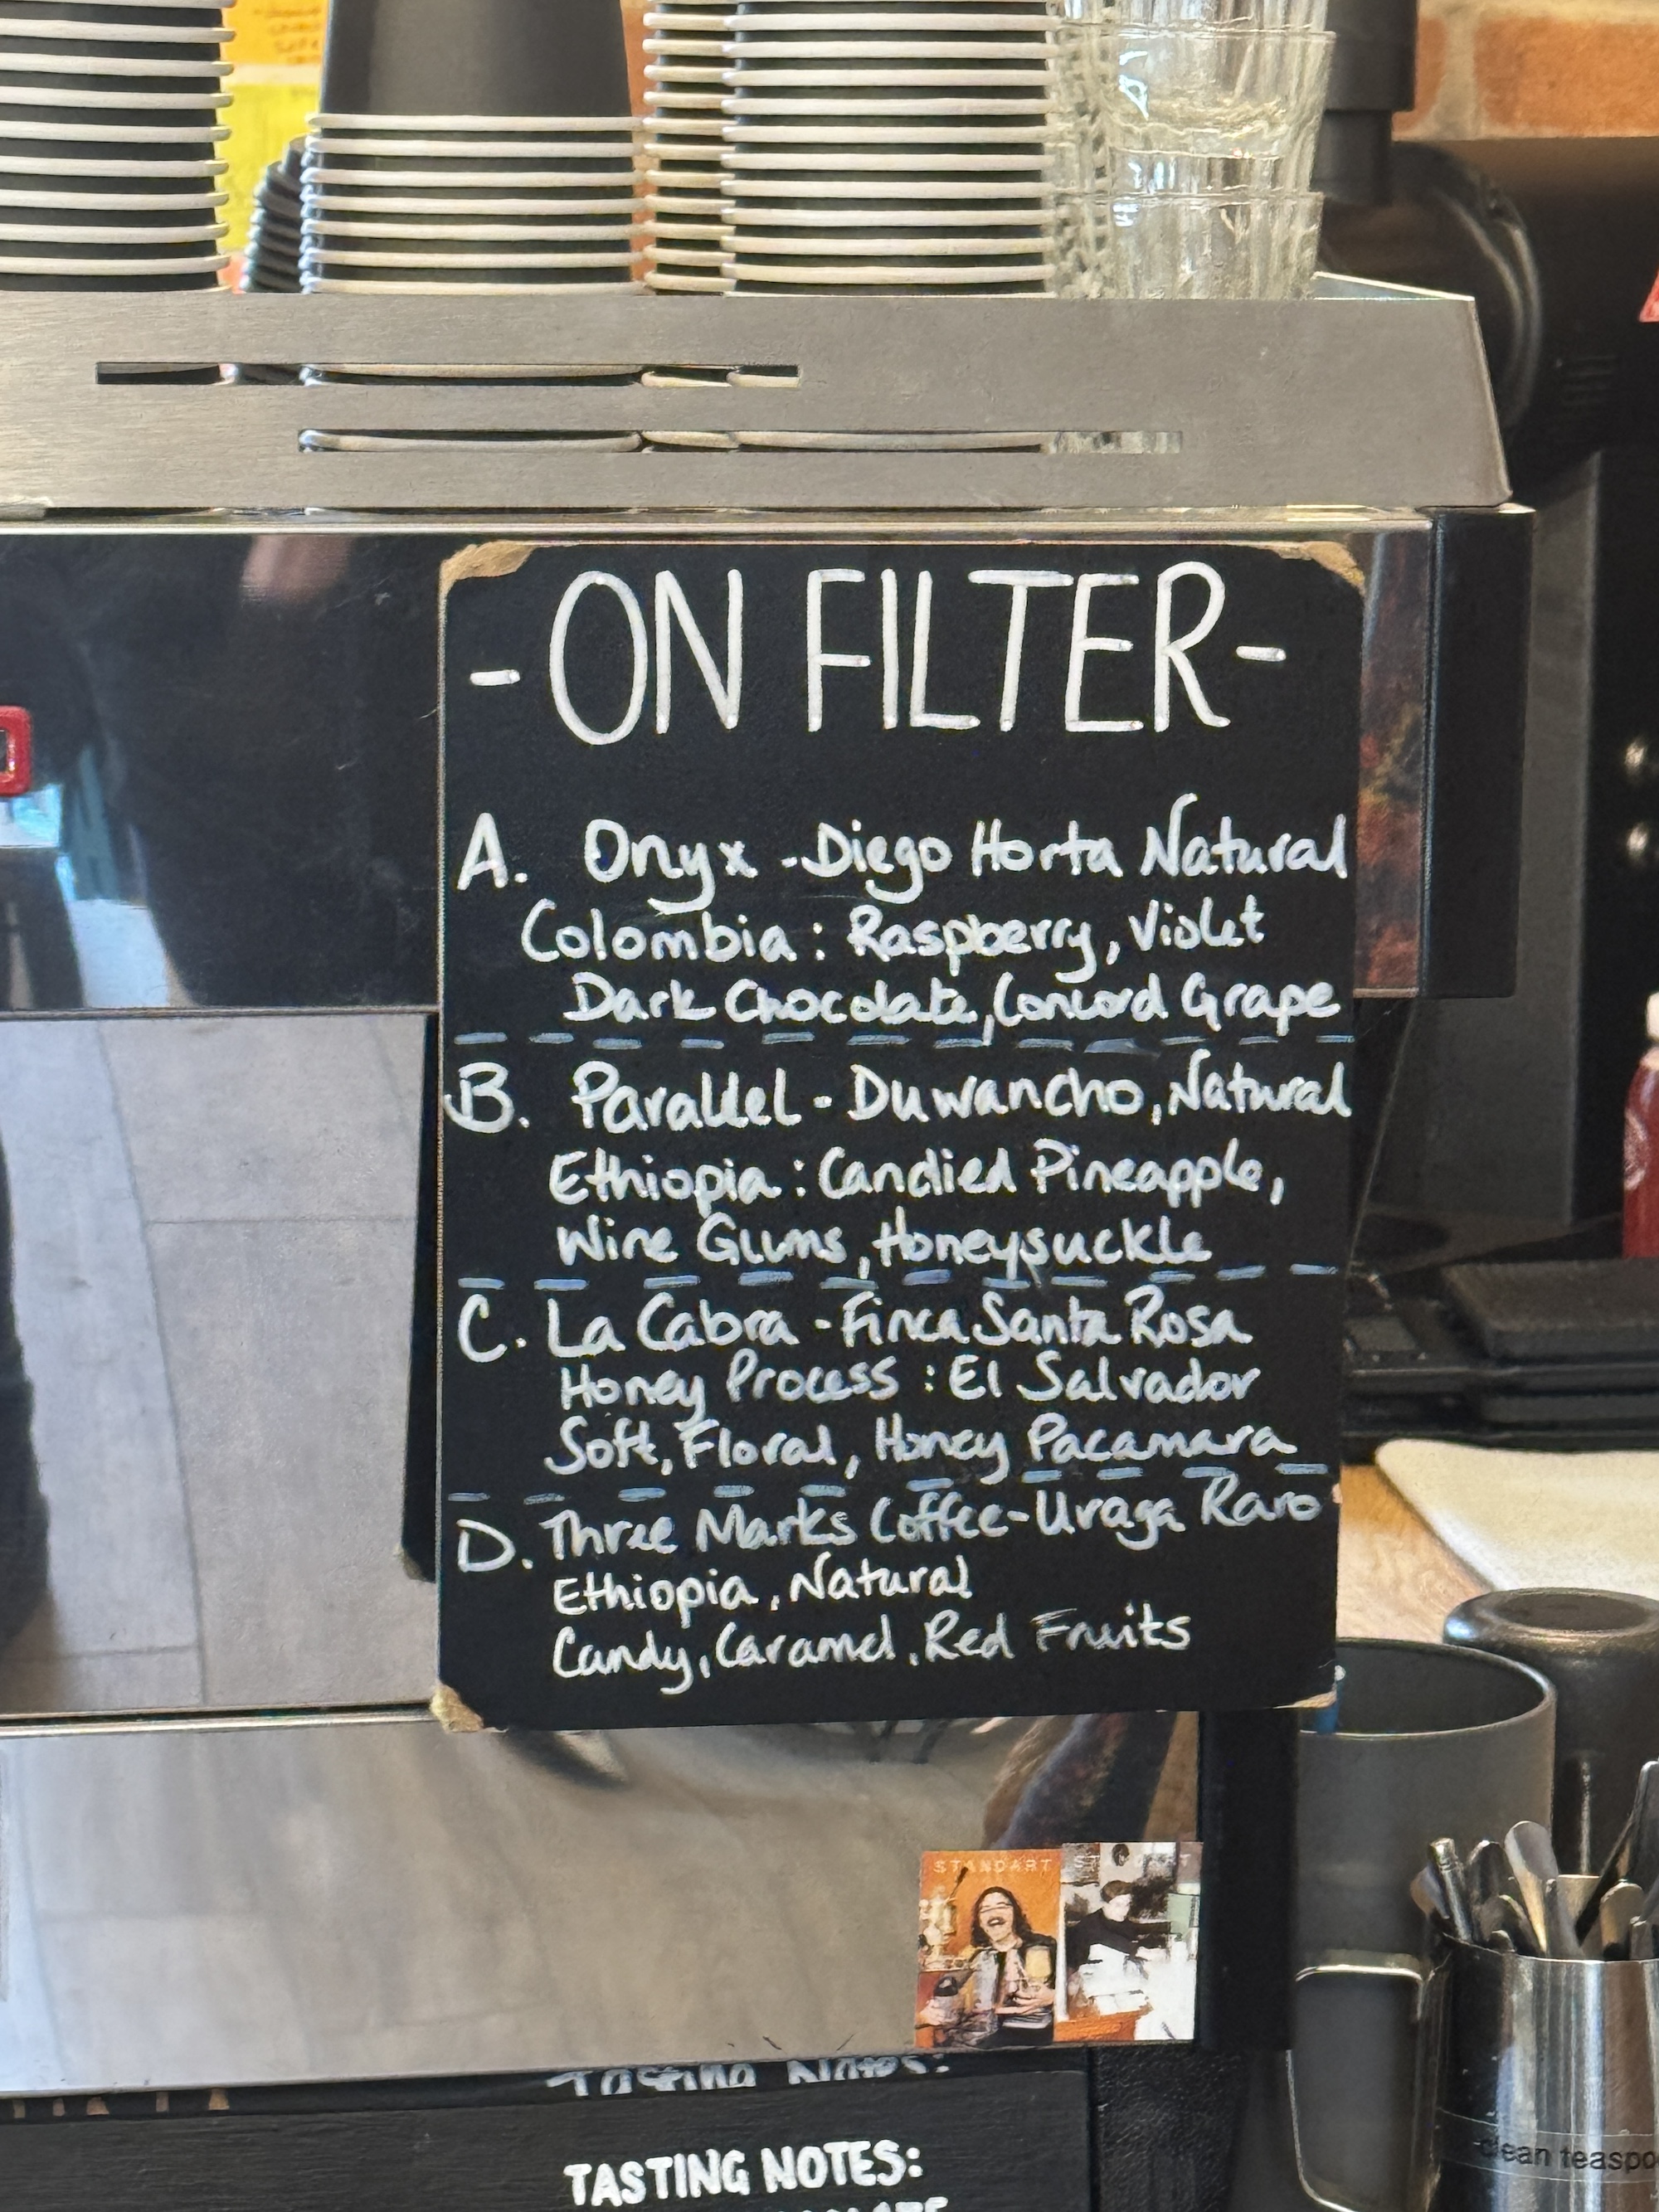 - ON FILTER -
A. Onyx - Diego Horta Natural
Colombia : Raspberry, Violet
Dark Chocolate, Concord Grape
B. Parallel - Duwancho, Natural
Ethiopia : Candied Pineapple,
Wine Gums, Honeysuckle
C. La Cabra - Finca Santa Rosa
Honey Process : El Salvador
Soft, Floral, Honey Pacamara
D. Three Marks Coffee - Uraga Raro
Ethiopia, Natural
Candy, Caramel, Red Fruits
STANDART
TASTING NOTES:
clean